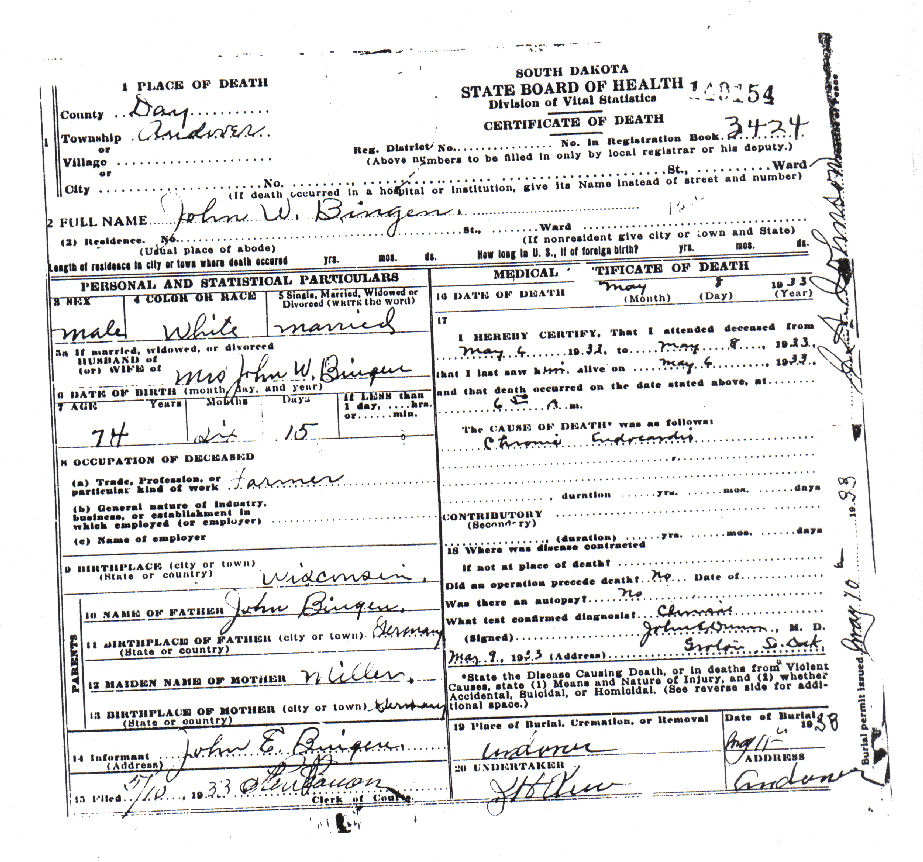 SOUTH DAKOTA
STATE BOARD OF HEALTH
Division of Vital Statistics
CERTIFICATE OF DEATH
1 PLACE OF DEATH
County Day
Township Andover
or
Village
or
City No. St., Ward
(If death occurred in a hospital or institution, give its Name instead of street and number)
Reg. District No. No. in Registration Book 3424
(Above numbers to be filled in only by local registrar or his deputy.)
2 FULL NAME John W. Bingen.
(2) Residence. No. St., Ward
(Usual place of abode) (If nonresident give city or town and State)
Length of residence in city or town where death occured yrs. mos. ds. How long in U. S., if of foreign birth? yrs. mos. ds.
PERSONAL AND STATISTICAL PARTICULARS
3 SEX 4 COLOR OR RACE 5 Single, Married, Widowed or
Divorced (WRITE the word)
male White married
5a If married, widowed, or divorced
HUSBAND of
(or) WIFE of Mrs John W. Bingen
6 DATE OF BIRTH (month, day, and year)
7 AGE Years Months Days If LESS than
1 day, hrs.
or min.
74 six 15
8 OCCUPATION OF DECEASED
(a) Trade, Profession, or
particular kind of work Farmer
(b) General nature of industry,
business, or establishment in
which employed (or employer)
(c) Name of employer
9 BIRTHPLACE (city or town)
(State or country) Wisconsin.
PARENTS
10 NAME OF FATHER John Bingen.
11 BIRTHPLACE OF FATHER (city or town) Germany
(State or country)
12 MAIDEN NAME OF MOTHER Miller.
13 BIRTHPLACE OF MOTHER (city or town) Germany
(State or country)
14 Informant John E. Bingen.
(Address)
15 Filed 5/10, 1933
Clerk of Courts
MEDICAL TIFICATE OF DEATH
16 DATE OF DEATH May 8 1933
(Month) (Day) (Year)
17
I HEREBY CERTIFY, That I attended deceased from
May 6 1933, to May 8, 1933,
that I last saw him alive on May 6, 1933,
and that death occurred on the date stated above, at
6 m.
The CAUSE OF DEATH* was as follows:
Chronic Endocardis
, duration yrs. mos. days
CONTRIBUTORY
(Secondary)
(duration) yrs. mos. days
18 Where was disease contracted
if not at place of death?
Did an operation precede death? No Date of
Was there an autopsy? No
What test confirmed diagnosis?
(Signed) M. D.
May 9, 1933 (Address) Groton So Dak
*State the Disease Causing Death, or in deaths from Violent
Causes, state (1) Means and Nature of Injury, and (2) whether
Accidental, Suicidal, or Homicidal. (See reverse side for addi-
tional space.)
19 Place of Burial, Cremation, or Removal Date of Burial
Andover May 11 1933
20 UNDERTAKER ADDRESS
Andover
Burial permit issued May 10 1933